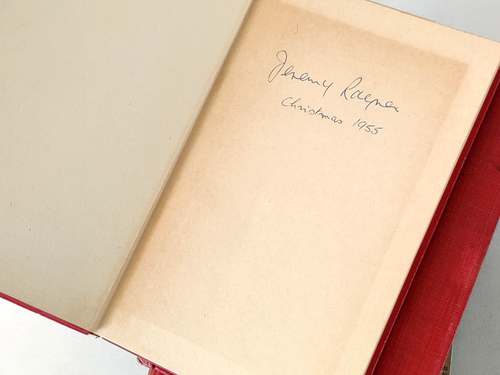 Jeremy Rayner
Christmas 1955